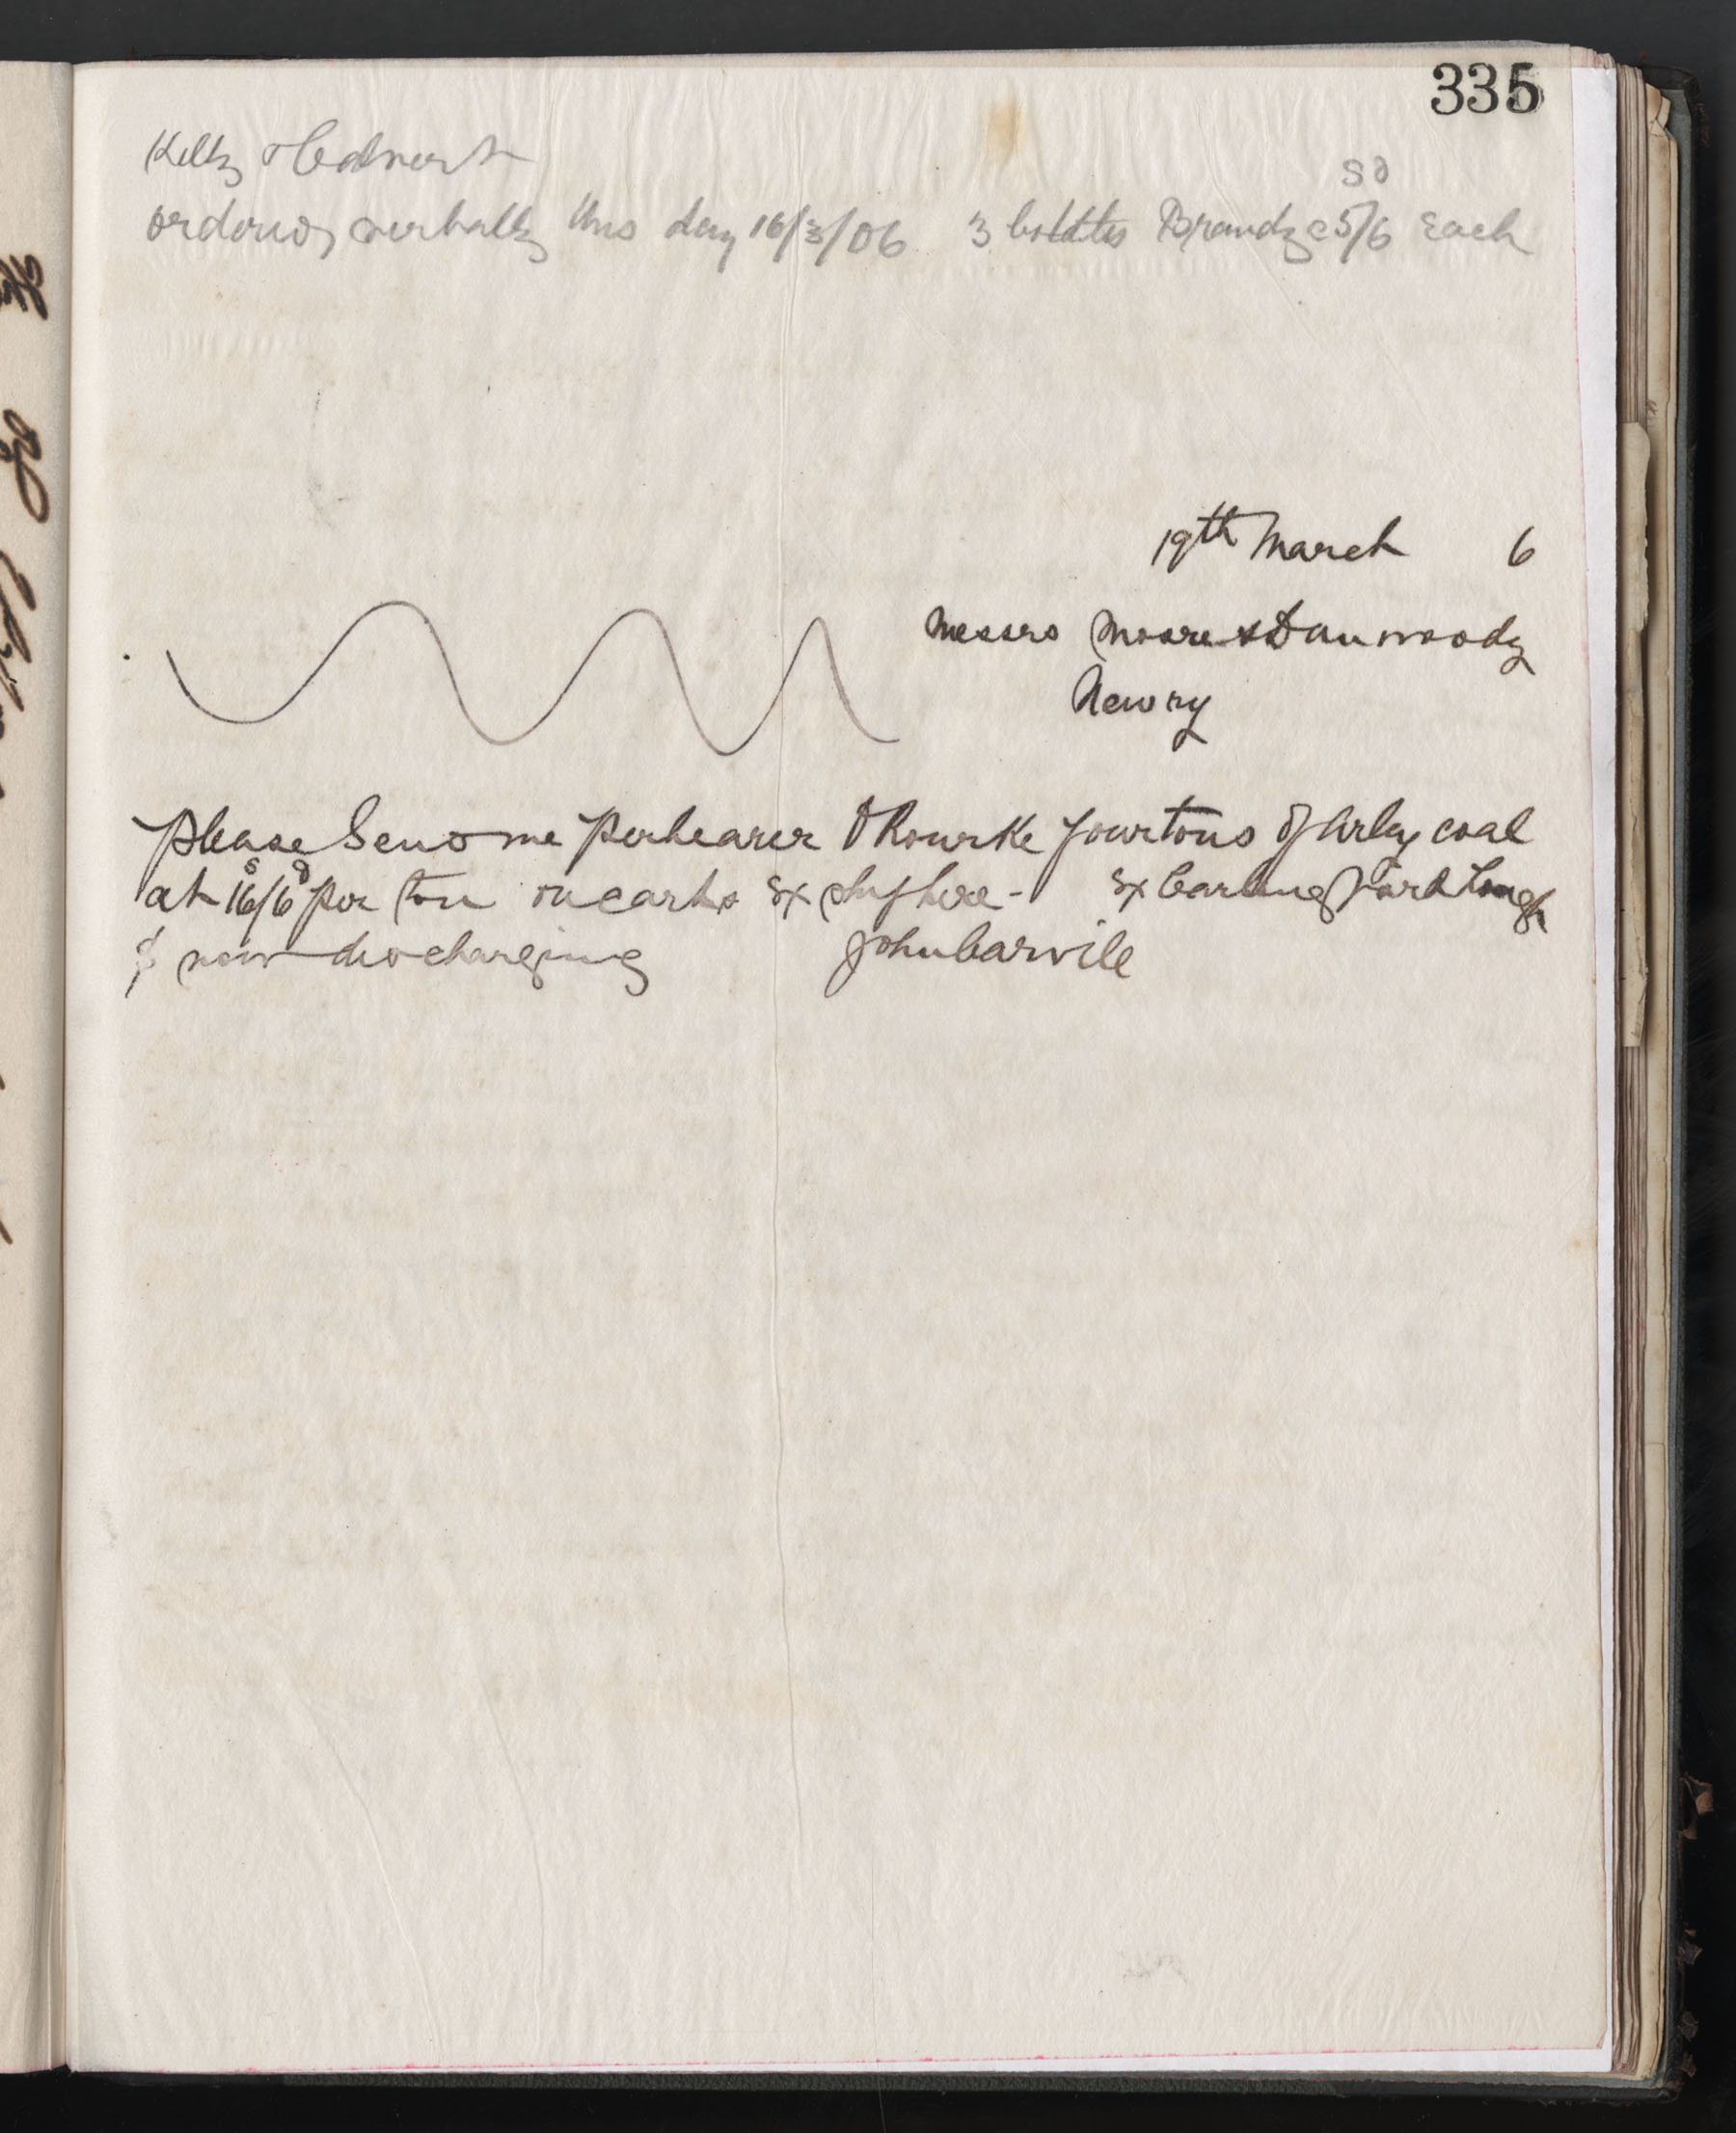 335
Kelly &
s d
ordered verbally this day 16/3/06 3 bottles Brandy @ 5/6 each
19th March 6
Messrs Moore & Dunwoody
Newry
Please Send me per bearer O Rourke four tons of Arley coal
s d
at 16/6 per ton on carts Ex ship here - Ex Carlingford Lough
& now discharging John Carvile